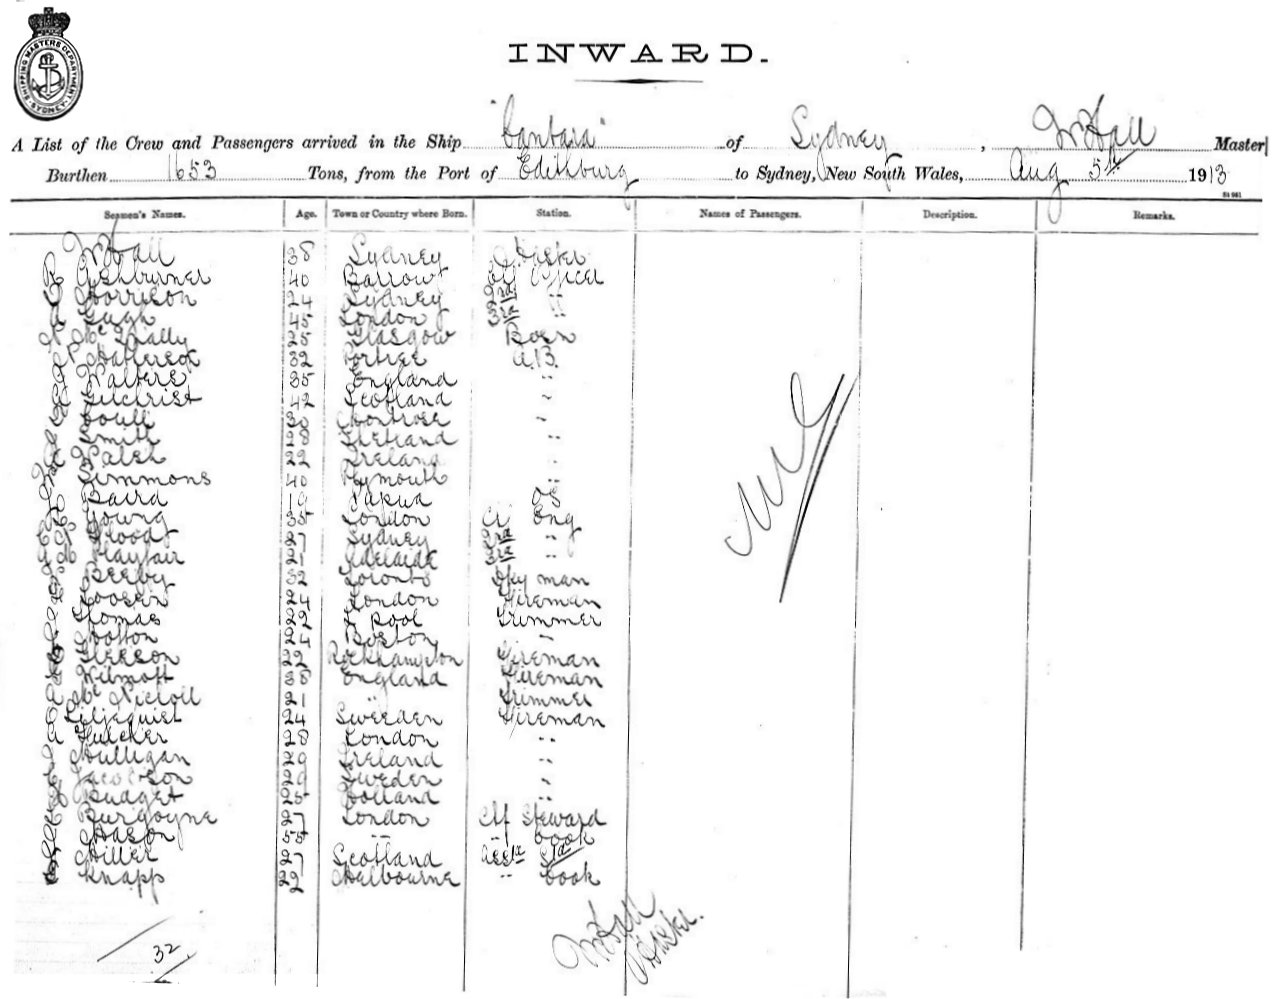 SHIPPING MASTERS DEPARTMENT SYDNEY
INWARD.
A List of the Crew and Passengers arrived in the Ship "Canbara" of Sydney, W Hall Master
Burthen 1653 Tons, from the Port of Edithburg to Sydney, New South Wales, Aug 5th 1913
Seamen's Names. Age. Town or Country where Born. Station. Names of Passengers. Description. Remarks.
W Hall 38 Sydney Master
R Ashburner 40 Barrow Officer
Morrison 24 Sydney 2nd "
Gugh 45 London 3rd "
Mc Nally 25 Glasgow Bosn
Halcrow 32 Portree A.B.
Walters 35 England "
Gilchrist 42 Scotland "
Coull 30 Montrose
Smith 28 Shetland "
Walsh 22 Ireland "
Simmons 40 Plymouth "
Baird 19 Papua OS
Young 35 London Eng
Flood 27 Sydney 2nd "
Playfair 21 Adelaide 3rd "
Beeby 32 Toronto Dky man
24 London Fireman
Thomas 22 L'pool Trimmer
Cotton 24 Boston "
Gleeson 22 Rockhampton Fireman
Wilmott 38 England Fireman
A Mc Nicholl 21 " Trimmer
Liljequist 24 Sweden Fireman
A 28 London "
Mulligan 29 Ireland "
Jacobson 29 Sweden "
Budget 25 Holland "
Burgoyne 27 London Ch Steward
Mason 55 " " Cook
Miller 27 Scotland Asst Std
Knapp 22 Melbourne " Cook
32
W Hall
Master.